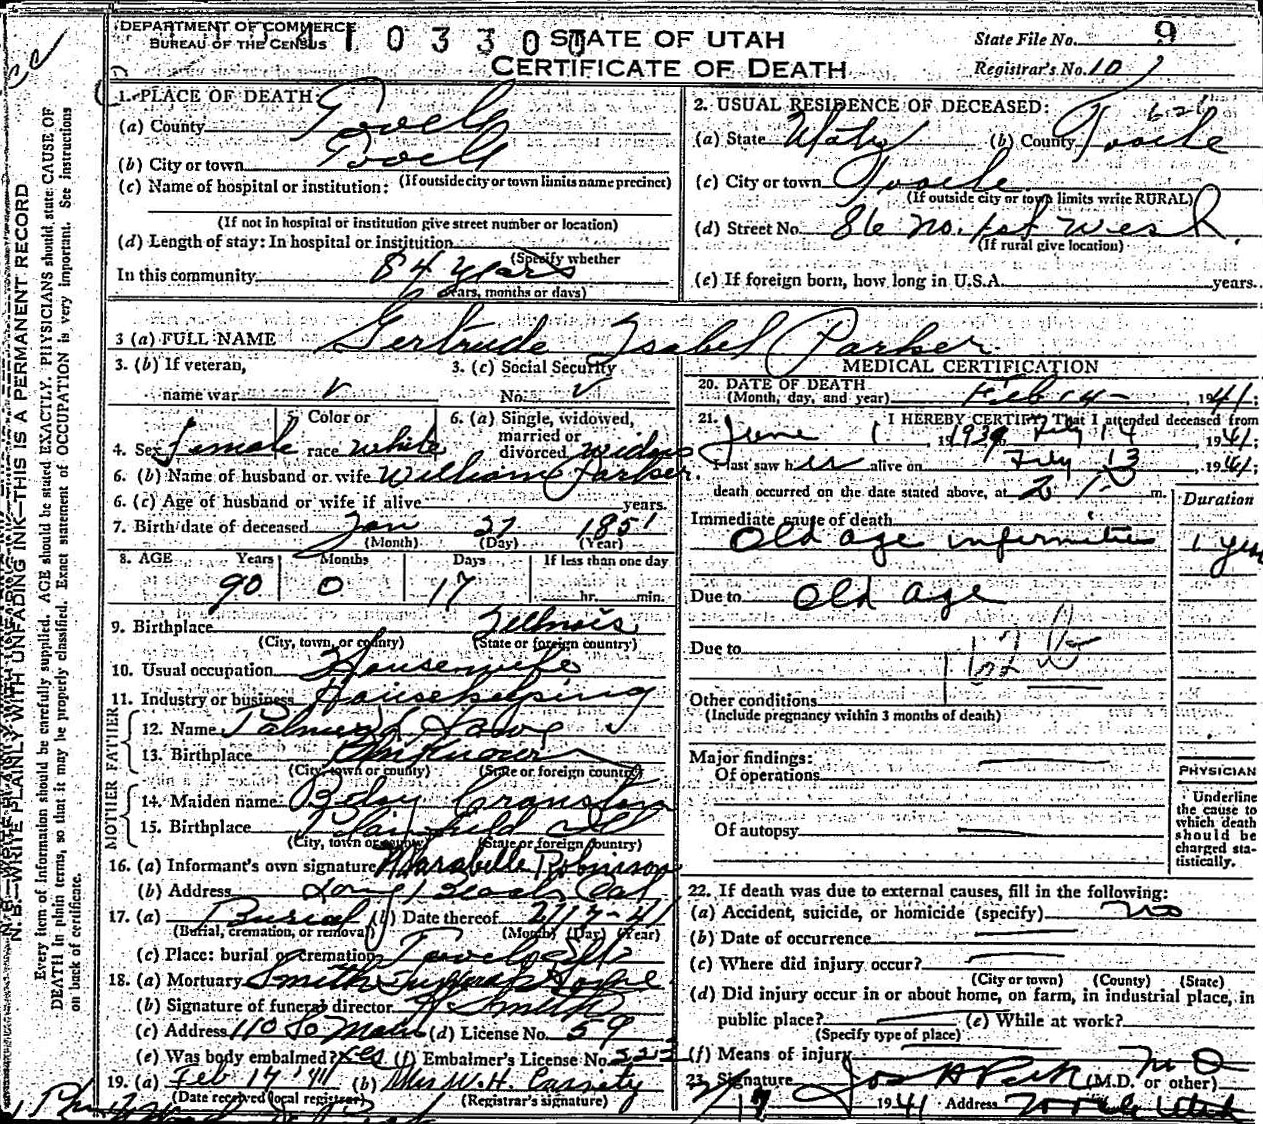 DEPARTMENT OF COMMERCE
BUREAU OF THE CENSUS
10330
STATE OF UTAH
CERTIFICATE OF DEATH
State File No. 9
Registrar's No. 10
N. B.—WRITE PLAINLY WITH UNFADING INK—THIS IS A PERMANENT RECORD
Every item of information should be carefully supplied. AGE should be stated EXACTLY. PHYSICIANS should state CAUSE OF
DEATH in plain terms, so that it may be properly classified. Exact statement of OCCUPATION is very important. See instructions
on back of certificate.
1. PLACE OF DEATH:
(a) County Tooele
(b) City or town Tooele
(If outside city or town limits name precinct)
(c) Name of hospital or institution:
(If not in hospital or institution give street number or location)
(d) Length of stay: In hospital or institution
(Specify whether
In this community 84 years
years, months or days)
2. USUAL RESIDENCE OF DECEASED:
(a) State Utah (b) County Tooele
(c) City or town Tooele
(If outside city or town limits write RURAL)
(d) Street No. 86 No. 1st West.
(If rural give location)
(e) If foreign born, how long in U.S.A. years.
3 (a) FULL NAME Gertrude Isabel Parker
3. (b) If veteran,
name war
3. (c) Social Security
No.
4. Sex Female
5. Color or
race white
6. (a) Single, widowed,
married or
divorced widow
6. (b) Name of husband or wife William Parker.
6. (c) Age of husband or wife if alive years.
7. Birth date of deceased Jan 27 1851
(Month) (Day) (Year)
8. AGE Years Months Days If less than one day
90 0 17 hr. min.
9. Birthplace Illinois
(City, town, or county) (State or foreign country)
10. Usual occupation Housewife
11. Industry or business Housekeeping
FATHER
12. Name
13. Birthplace Unknown
(City, town or county) (State or foreign country)
MOTHER
14. Maiden name Betsy Cranston
15. Birthplace Plainfield Ill
(City, town or county) (State or foreign country)
16. (a) Informant's own signature Marabelle Robinson
(b) Address Long Beach Cal
17. (a) Burial (b) Date thereof 2/17-41
(Burial, cremation, or removal) (Month) (Day) (Year)
(c) Place: burial or cremation Tooele
18. (a) Mortuary Smith Funeral Home
(b) Signature of funeral director Smith
(c) Address 110 So Main (d) License No. 59
(e) Was body embalmed? yes (f) Embalmer's License No.
19. (a) Feb 17 '41 (b) Mrs W. H. Cassity
(Date received local registrar) (Registrar's signature)
MEDICAL CERTIFICATION
20. DATE OF DEATH
(Month, day, and year) Feb 14 - , 1941;
21. I HEREBY CERTIFY That I attended deceased from
June 1, 1939 to Feby 14 1941;
I last saw her alive on Feby 13, 1941;
death occurred on the date stated above, at m.
Duration
Immediate cause of death
Old age infirmities 1 year
Due to Old Age
Due to
Other conditions
(Include pregnancy within 3 months of death)
Major findings:
Of operations
Of autopsy
PHYSICIAN
Underline
the cause to
which death
should be
charged sta-
tistically.
22. If death was due to external causes, fill in the following:
(a) Accident, suicide, or homicide (specify) no
(b) Date of occurrence
(c) Where did injury occur?
(City or town) (County) (State)
(d) Did injury occur in or about home, on farm, in industrial place, in
public place? (e) While at work?
(Specify type of place)
(f) Means of injury
23. Signature Jos H Peck M D (M.D. or other)
2/17 1941 Address Tooele Utah